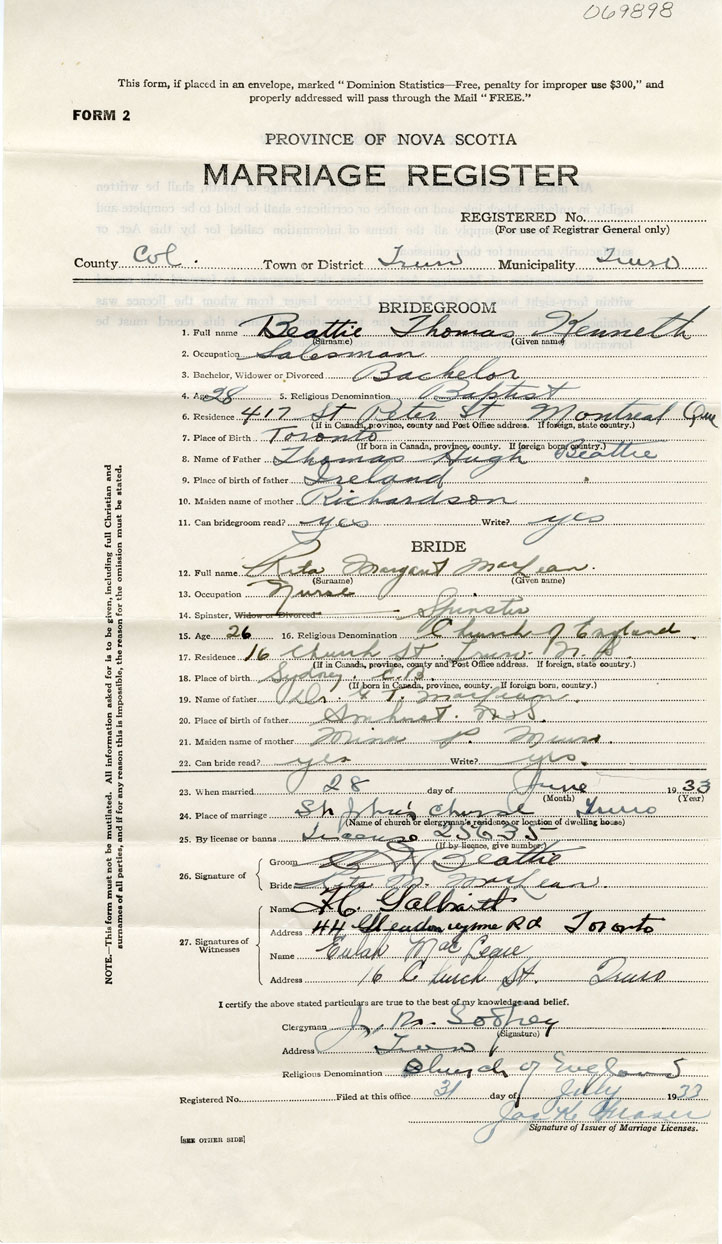 069898
This form, if placed in an envelope, marked "Dominion Statistics—Free, penalty for improper use $300," and
properly addressed will pass through the Mail "FREE."
FORM 2
PROVINCE OF NOVA SCOTIA
MARRIAGE REGISTER
REGISTERED No.
(For use of Registrar General only)
County Col. Town or District Truro Municipality Truro
BRIDEGROOM
1. Full name Beattie Thomas Kenneth
(Surname) (Given name)
2. Occupation Salesman
3. Bachelor, Widower or Divorced Bachelor
4. Age 28 5. Religious Denomination Baptist
6. Residence 417 St Peter St Montreal Que
(If in Canada, province, county and Post Office address. If foreign, state country.)
7. Place of Birth Toronto
(If born in Canada, province, county. If foreign born, country.)
8. Name of Father Thomas Hugh Beattie
9. Place of birth of father Ireland
10. Maiden name of mother Richardson
11. Can bridegroom read? yes Write? yes
BRIDE
12. Full name Rita Margaret MacLean.
(Surname) (Given name)
13. Occupation Nurse
14. Spinster, Widow or Divorced Spinster
15. Age 26 16. Religious Denomination Church of England.
17. Residence 16 Church St. Truro N.S.
(If in Canada, province, county and Post Office address. If foreign, state country.)
18. Place of birth Sydney C.B.
(If born in Canada, province, county. If foreign born, country.)
19. Name of father Dr. T. MacLean.
20. Place of birth of father Amherst. N.S.
21. Maiden name of mother Mina P.
22. Can bride read? yes Write? yes.
23. When married 28 day of June 1933
(Month) (Year)
24. Place of marriage St John's church Truro
(Name of church or clergyman's residence or location of dwelling house)
25. By license or banns License 25635
(If by licence, give number)
26. Signature of
Groom Beattie
Bride Rita M. MacLean.
27. Signatures of Witnesses
Name H. Galbraith
Address 44 Rd Toronto
Name Eulah MacLean
Address 16 Church St. Truro
I certify the above stated particulars are true to the best of my knowledge and belief.
Clergyman Godfrey
(Signature)
Address Truro
Religious Denomination Church of England
Registered No. Filed at this office 31 day of July 1933
Jas K Fraser
Signature of Issuer of Marriage Licenses.
[SEE OTHER SIDE]
NOTE.—This form must not be mutilated. All information asked for is to be given, including full Christian and
surnames of all parties, and if for any reason this is impossible, the reason for the omission must be stated.